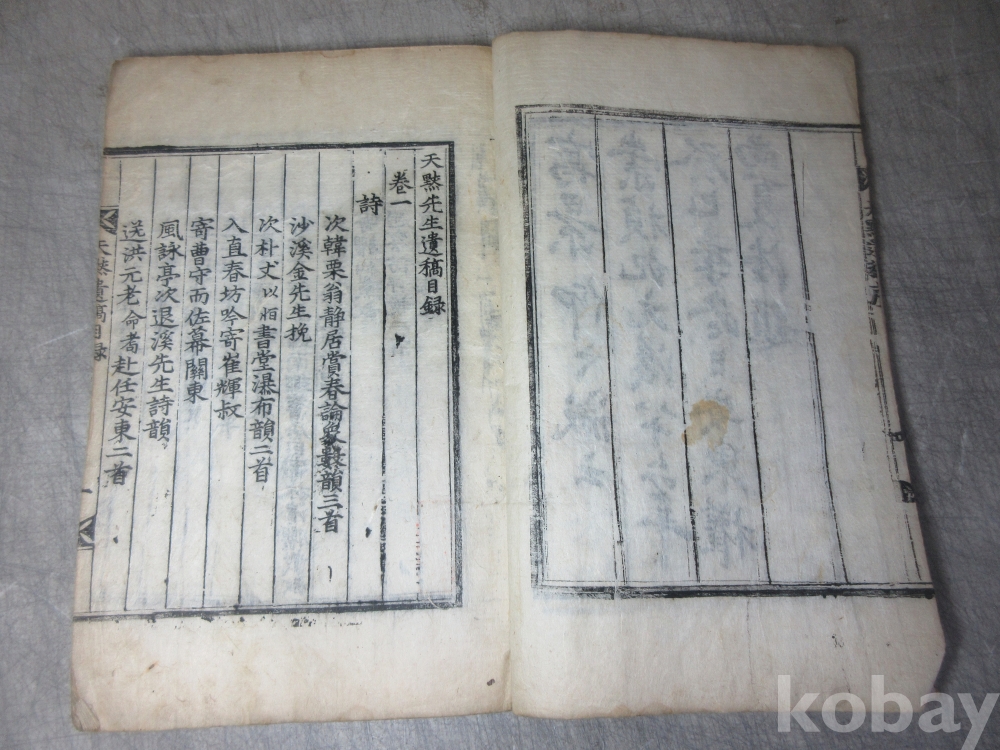 天黙先生遺稿目録
卷一
詩
次韓栗翁静居賞春論象數韻三首
沙溪金先生挽
次朴丈以恒書堂瀑布韻二首
入直春坊吟寄崔輝叔
寄曹守而佐幕關東
風詠亭次退溪先生詩韻
送洪元老命耈赴任安東二首
天黙遺稿目录
一
kobay